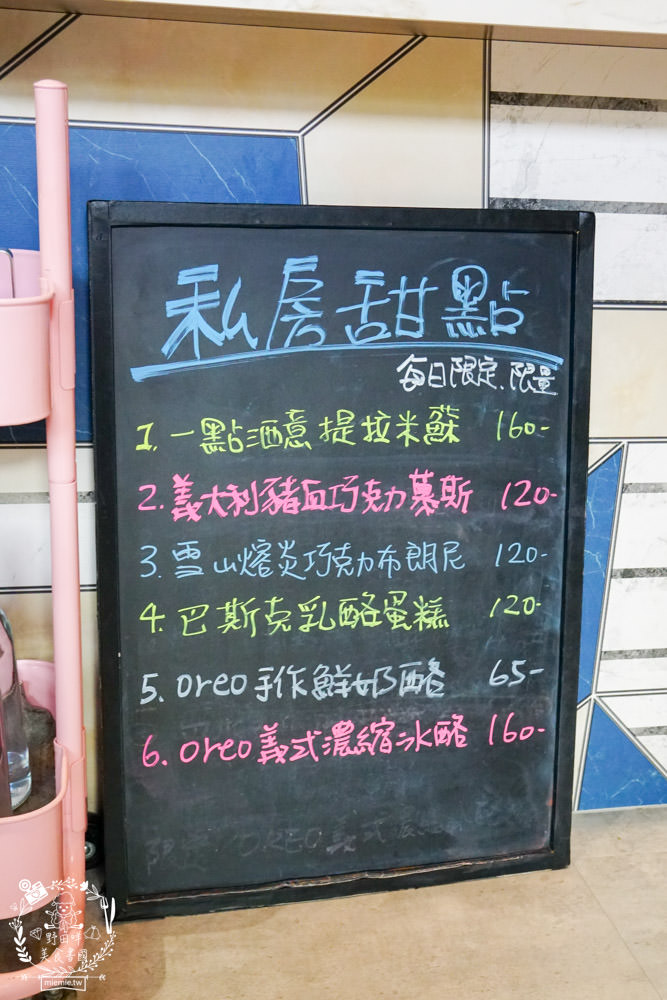 私房甜點
每日限定、限量
1. 一點酒意提拉米蘇 160-
2. 義大利豬血巧克力慕斯 120-
3. 雪山熔炎巧克力布朗尼 120-
4. 巴斯克乳酪蛋糕 120-
5. oreo手作鮮奶酪 65-
6. oreo義式濃縮冰酪 160-
野田咩
美食書國
miemie.tw